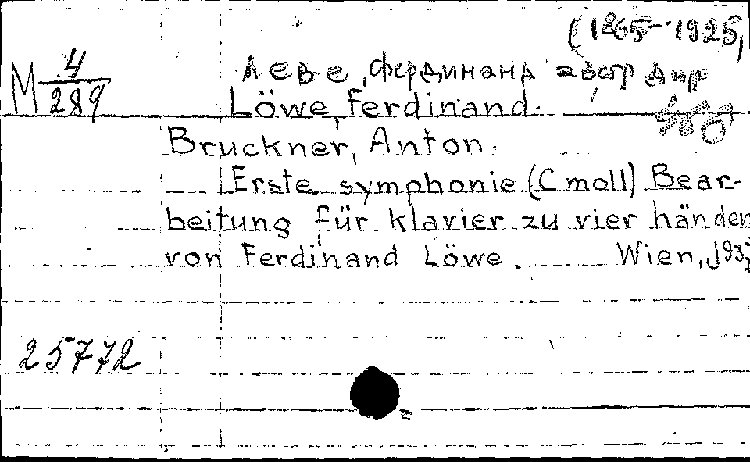 (1865-1925,
M 4/289
Леве, Фердинанд австр дир
Löwe, Ferdinand.
Bruckner, Anton.
Erste symphonie (C moll) Bear-
beitung für klavier zu vier händen
von Ferdinand Löwe. Wien,
25772